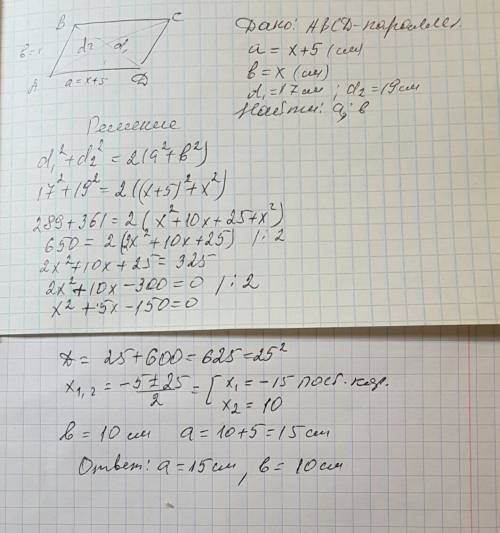 B C
в=x d₂ d₁
A a=x+5 D
Дано: ABCD-параллел.
a = x+5 (см)
в = x (см)
d₁=17см; d₂=19см
Найти: a; в
Решение
d₁²+d₂² = 2(a²+в²)
17²+19² = 2((x+5)²+x²)
289+361=2(x²+10x+25+x²)
650 = 2(2x²+10x+25) |:2
2x²+10x+25=325
2x²+10x-300=0 |:2
x²+5x-150=0
D= 25+600=625=25²
x₁,₂ = (-5±25)/2 = [ x₁=-15 пост. кор.
x₂=10
в=10см a=10+5=15см
Ответ: a=15см, в=10см